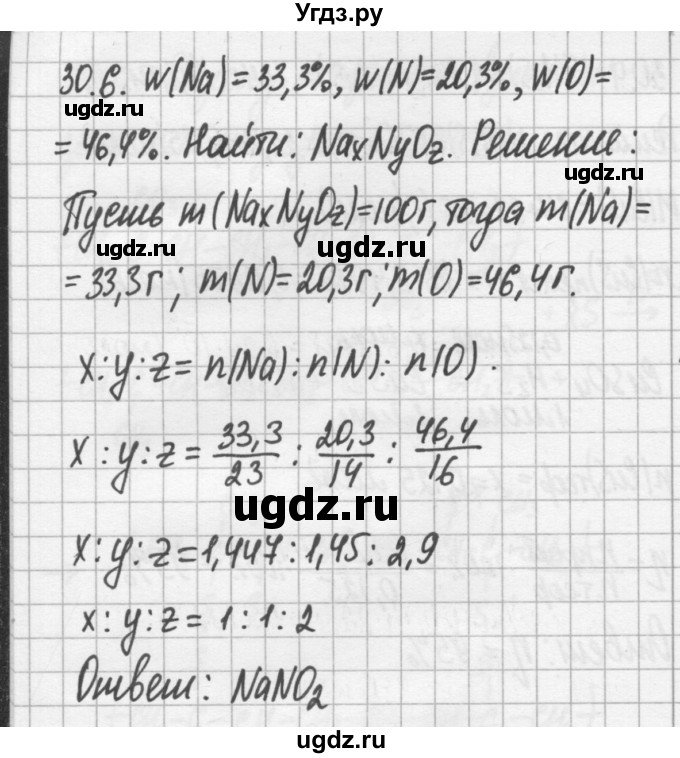 Угдз.ру
30.6. w(Na)=33,3%, w(N)=20,3%, w(O)=
ugdz.ru
=46,4%. Найти: NaxNyOz. Решение:
ugdz.ru
Пусть m(NaxNyOz)=100г, тогда m(Na)=
ugdz.ru ugdz.ru
=33,3г; m(N)=20,3г; m(O)=46,4г.
x:y:z= n(Na):n(N): n(O).
x:y:z= 33,3/23 : 20,3/14 : 46,4/16
ugdz.ru
x:y:z=1,447:1,45:2,9
x:y:z=1:1:2
Ответ: NaNO2
ugdz.ru